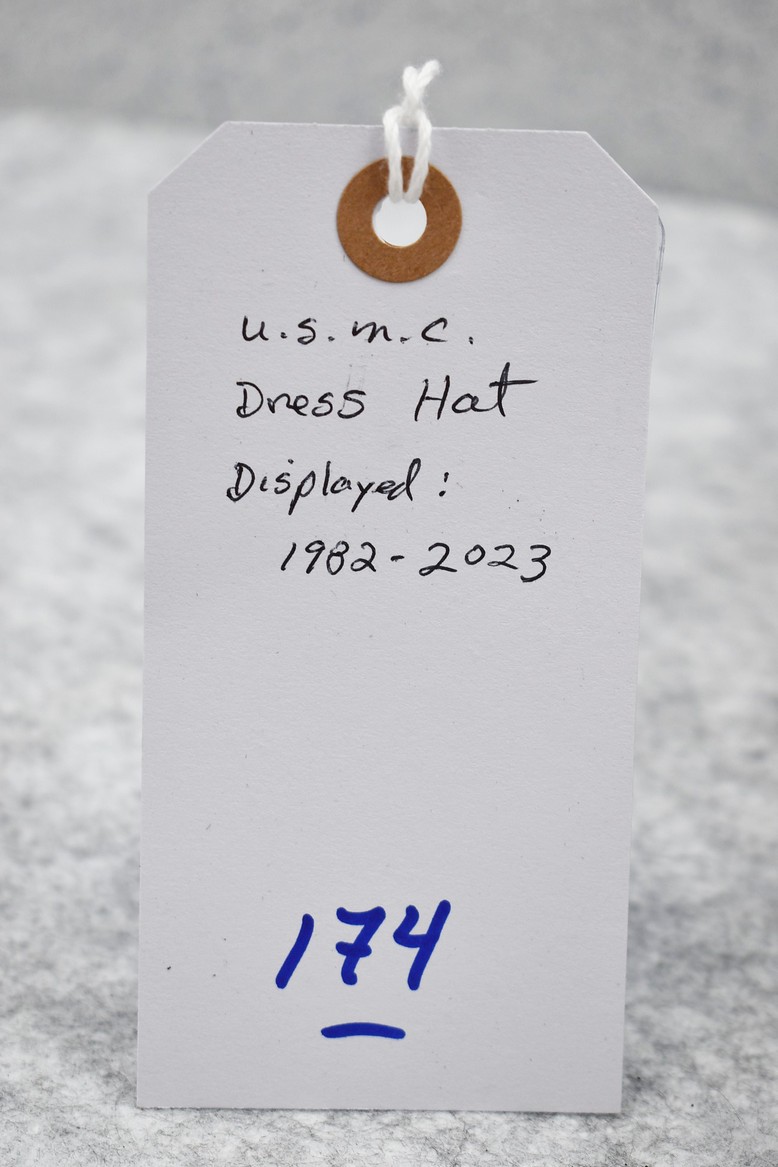 U.S.M.C.
Dress Hat
Displayed:
1982-2023
174